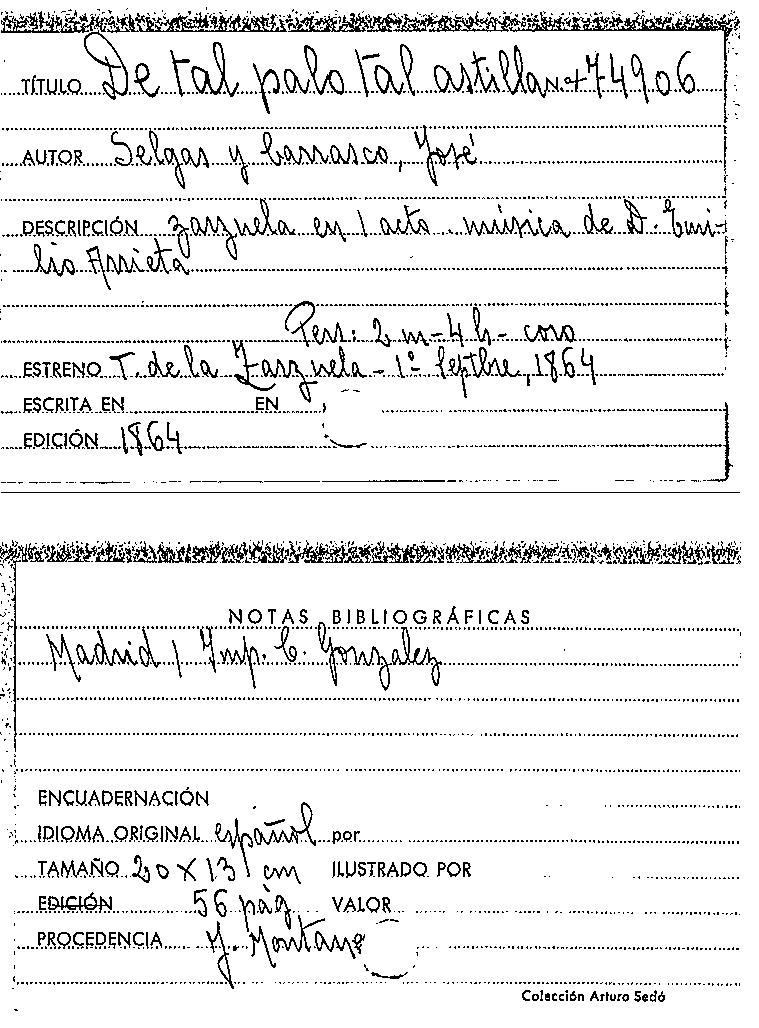 TÍTULO De tal palo tal astilla N.º 74906
AUTOR Selgas y Carrasco, José
DESCRIPCIÓN Zarzuela en 1 acto. música de D. Emi-
lio Arrieta
Pers: 2 m - 4 h - coro
ESTRENO T. de la Zarzuela - 1º Septbre, 1864
ESCRITA EN EN
EDICIÓN 1864
NOTAS BIBLIOGRÁFICAS
Madrid / Imp. C. Gonzalez
ENCUADERNACIÓN
IDIOMA ORIGINAL español por
TAMAÑO 20 X 13 cm ILUSTRADO POR
EDICIÓN 56 pág VALOR
PROCEDENCIA J. Montane
Colección Arturo Sedó